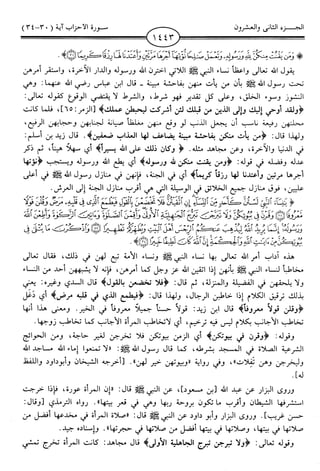 الجـــزء الثاني والعشـرون
سورة الأحزاب آية (٣٠-٣٤)
١٤٤٣
﴿ ۞ وَمَن يَقْنُتْ مِنكُنَّ لِلَّهِ وَرَسُولِهِ وَتَعْمَلْ صَالِحًا نُّؤْتِهَا أَجْرَهَا مَرَّتَيْنِ وَأَعْتَدْنَا لَهَا رِزْقًا كَرِيمًا ﴾.
يقول الله تعالى واعظاً نساء النبي ﷺ اللاتي اخترن الله ورسوله والدار الآخرة، واستقر أمرهن
تحت رسول الله ﷺ بأن من يأت منهن بفاحشة مبينة ـ قال ابن عباس رضي الله عنهما: وهي
النشوز وسوء الخلق، وعلى كل تقدير فهو شرط، والشرط لا يقتضي الوقوع كقوله تعالى:
﴿ولقد أوحي إليك وإلى الذين من قبلك لئن أشركت ليحبطن عملك﴾ [الزمر: ٦٥]، فلما كانت
محلتهن رفيعة ناسب أن يجعل الذنب لو وقع منهن مغلظاً صيانة لجنابهن وحجابهن الرفيع،
ولهذا قال: ﴿من يأت منكن بفاحشة مبينة يضاعف لها العذاب ضعفين﴾. قال زيد بن أسلم:
في الدنيا والآخرة، وعن مجاهد مثله. ﴿ وكان ذلك على الله يسيراً﴾ أي سهلاً هيناً، ثم ذكر
عدله وفضله في قوله: ﴿ومن يقنت منكن لله ورسوله﴾ أي يطع الله ورسوله ويستجب ﴿نؤتها
أجرها مرتين وأعتدنا لها رزقاً كريماً﴾ أي في الجنة، فإنهن في منازل رسول الله ﷺ في أعلى
عليين، فوق منازل جميع الخلائق في الوسيلة التي هي أقرب منازل الجنة إلى العرش.
هذه آداب أمر الله تعالى بها نساء النبي ﷺ ونساء الأمة تبع لهن في ذلك، فقال تعالى
مخاطباً لنساء النبي ﷺ بأنهن إذا اتقين الله عز وجل كما أمرهن، فإنه لا يشبههن أحد من النساء
ولا يلحقهن في الفضيلة والمنزلة، ثم قال: ﴿فلا تخضعن بالقول﴾ قال السدي وغيره: يعني
بذلك ترقيق الكلام إذا خاطبن الرجال، ولهذا قال: ﴿فيطمع الذي في قلبه مرض﴾ أي دَغَل
﴿وقلن قولاً معروفاً﴾ قال ابن زيد: قولاً حسناً جميلاً معروفاً في الخير. ومعنى هذا أنها
تخاطب الأجانب بكلام ليس فيه ترخيم، أي لا تخاطب المرأة الأجانب كما تخاطب زوجها.
وقوله: ﴿وقرن في بيوتكن﴾ أي الزمن بيوتكن فلا تخرجن لغير حاجة، ومن الحوائج
الشرعية الصلاة في المسجد بشرطه، كما قال رسول الله ﷺ: «لا تمنعوا إماء الله مساجد الله
وليخرجن وهن تفلات»، وفي رواية «وبيوتهن خير لهن». [أخرجه الشيخان وأبوداود واللفظ
له].
وروى البزار عن عبد الله [بن مسعود]، عن النبي ﷺ قال: «إن المرأة عورة، فإذا خرجت
استشرفها الشيطان وأقرب ما تكون بروحة ربها وهي في قعر بيتها». رواه الترمذي [وقال:
حسن غريب]. وروى البزار وأبو داود عن النبي ﷺ قال: «صلاة المرأة في مخدعها أفضل من
صلاتها في بيتها، وصلاتها في بيتها أفضل من صلاتها في حجرتها». وإسناده جيد.
وقوله تعالى: ﴿ولا تبرجن تبرج الجاهلية الأولى﴾ قال مجاهد: كانت المرأة تخرج تمشي